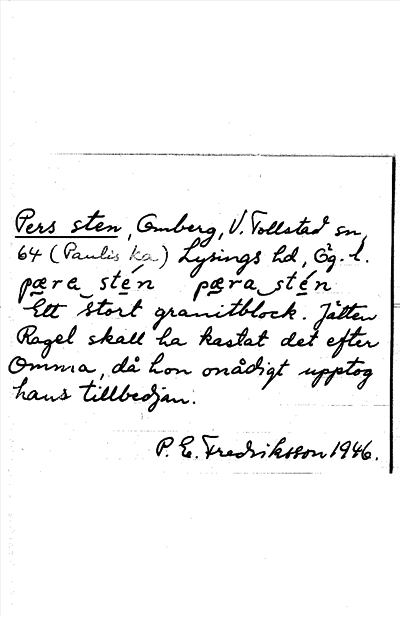 Pers sten, Omberg, V. Tollstad sn,
64 (Paulis ka) Lysings hd, Ög. l.
pæra stén pæra stén
Ett stort granitblock. Jätten
Ragel skall ha kastat det efter
Omma, då hon onådigt upptog
hans tillbedjan.
P. E. Fredriksson 1946.